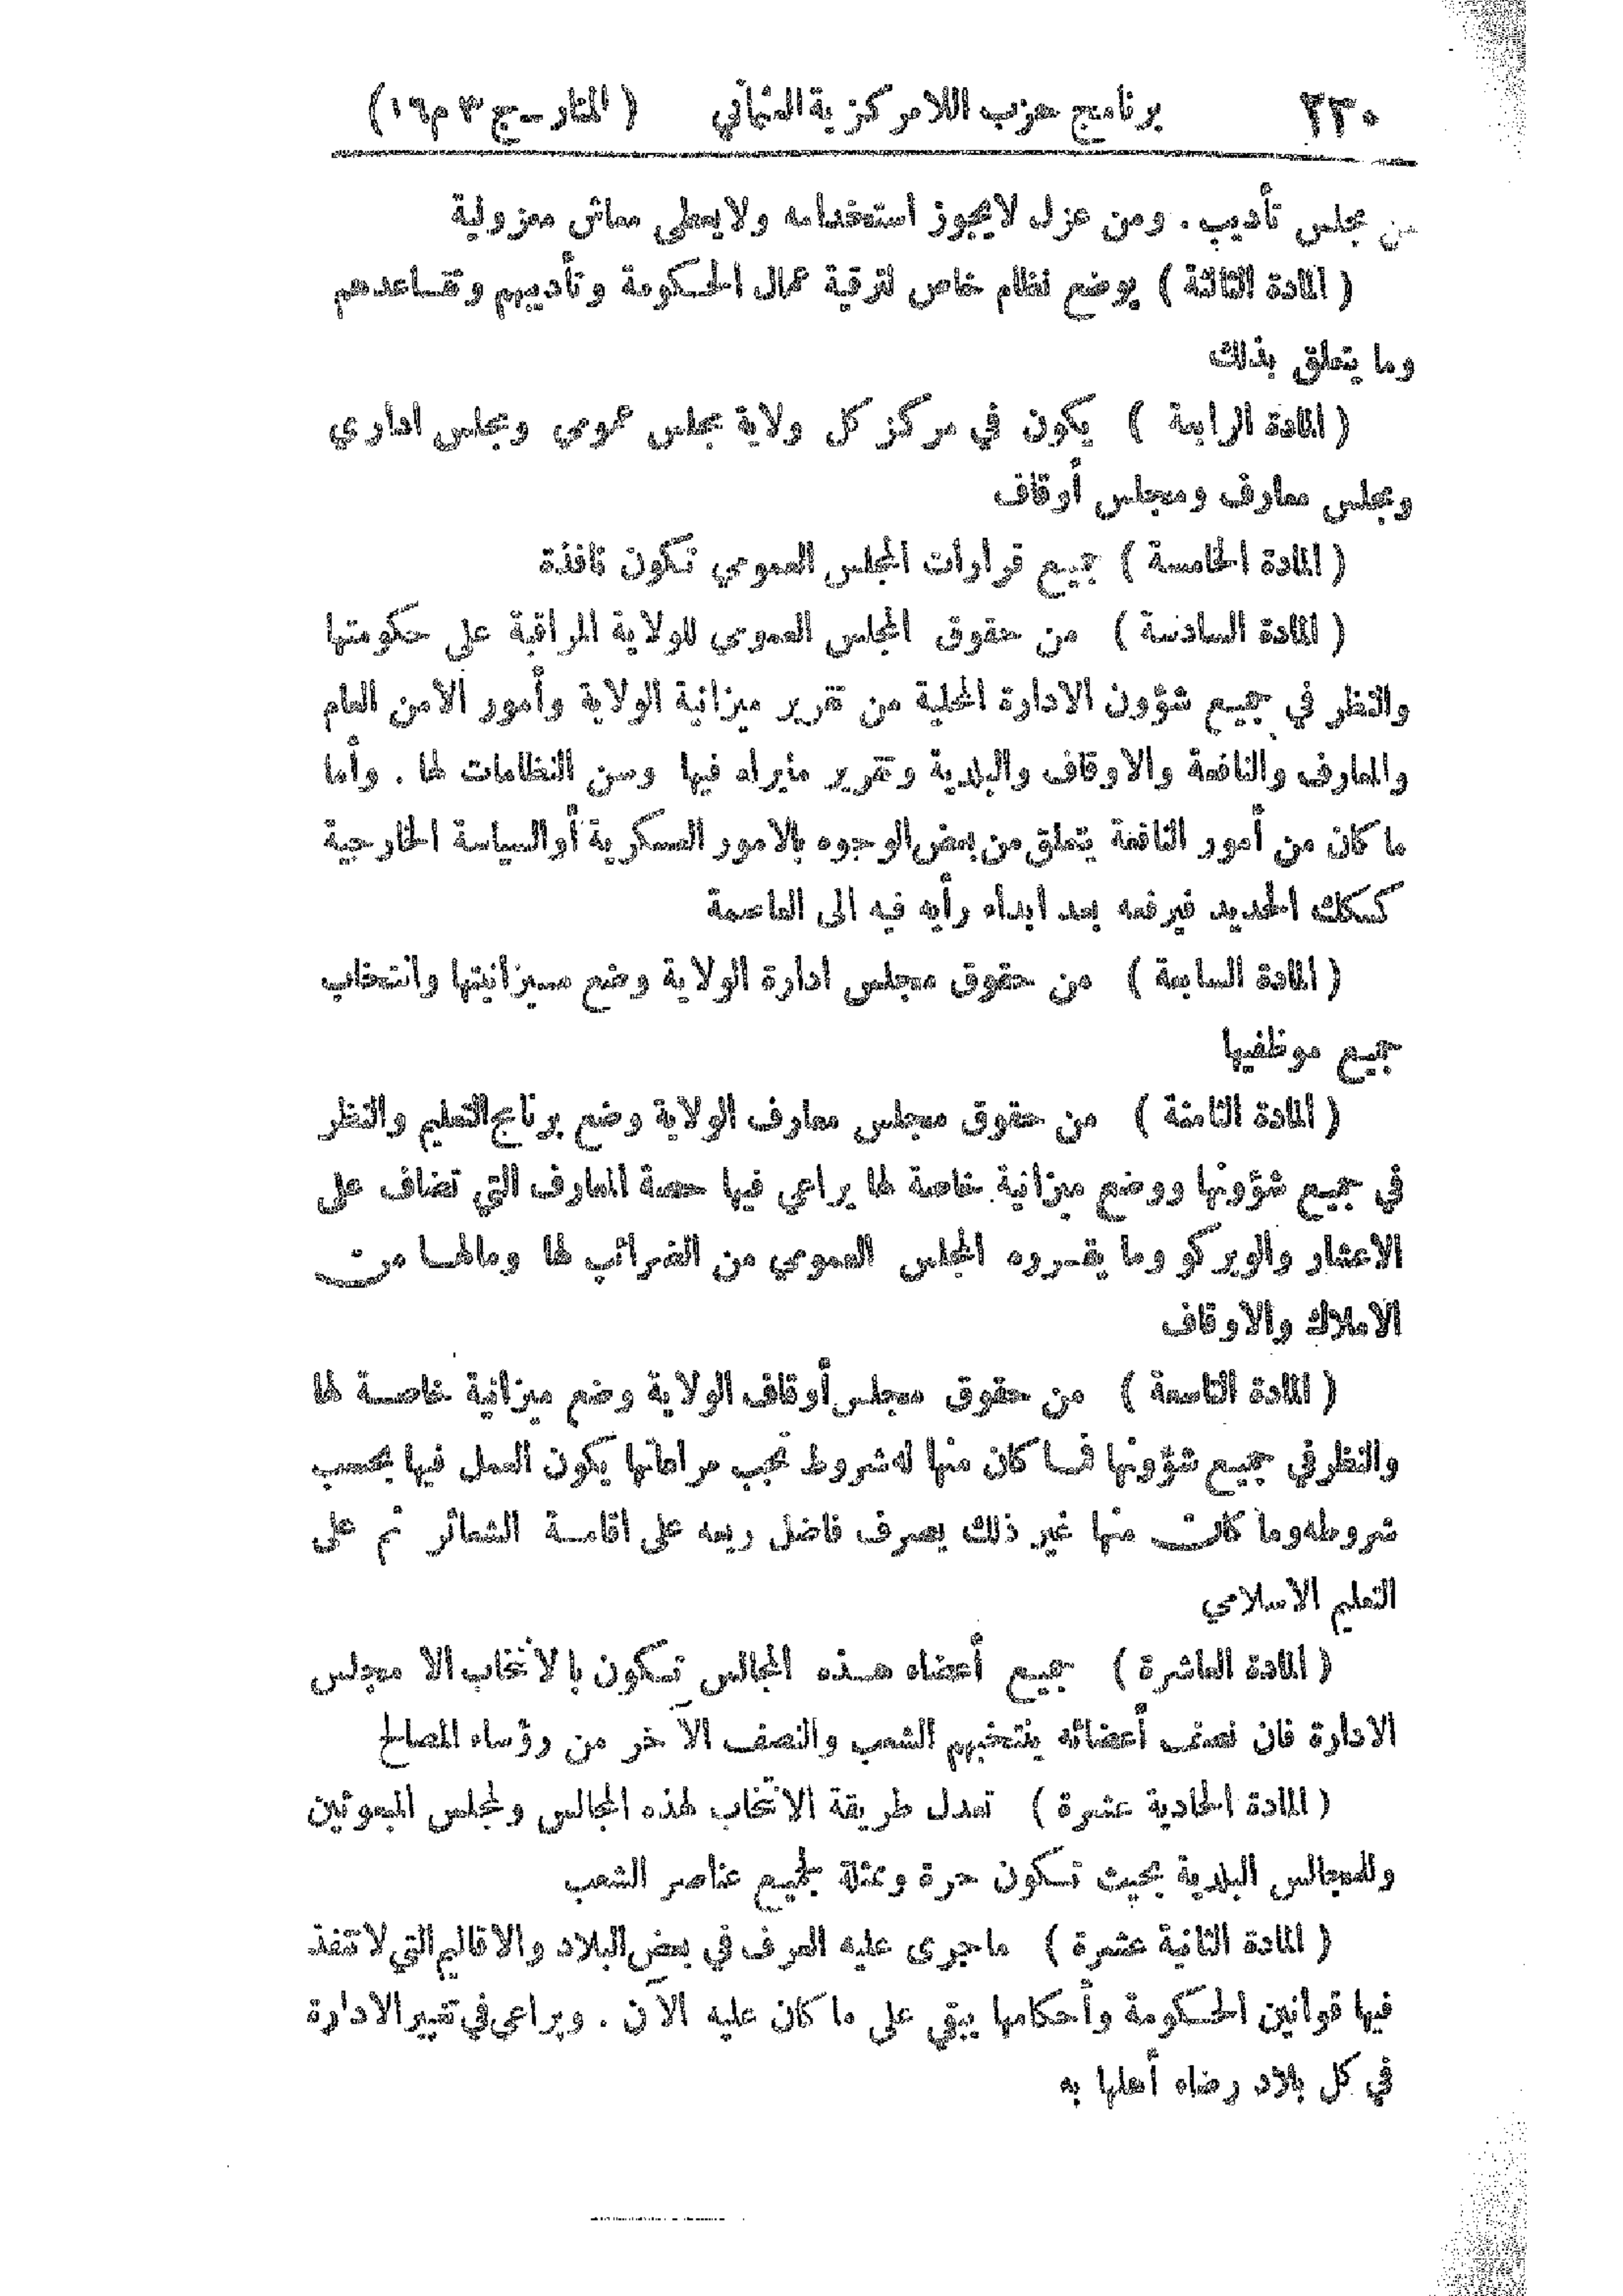 ٢٣٠ برنامج حزب اللامركزية العثماني ( المنار ــ ج ٣ م ١٦ )
من مجلس تأديب . ومن عزل لايجوز استخدامه ولايعطى معاش معزولية
( المادة الثالثة ) يوضع نظام خاص لترقية عمال الحكومة وتأديبهم وتقاعدهم
وما يتعلق بذلك
( المادة الرابعة ) يكون في مركز كل ولاية مجلس عمومي ومجلس اداري
ومجلس معارف ومجلس أوقاف
( المادة الخامسة ) جميع قرارات المجلس العمومي تكون نافذة
( المادة السادسة ) من حقوق المجلس العمومي للولاية المراقبة على حكومتها
والنظر في جميع شؤون الادارة المحلية من تقرير ميزانية الولاية وأمور الامن العام
والمعارف والنافعة والاوقاف والبلدية وتقرير مايراه فيها وسن النظامات لها . وأما
ما كان من أمور النافعة يتعلق من بعض الوجوه بالامور العسكرية أو السياسة الخارجية
كسكك الحديد فيرفعه بعد ابداء رأيه فيه الى العاصمة
( المادة السابعة ) من حقوق مجلس ادارة الولاية وضع ميزانيتها وانتخاب
جميع موظفيها
( المادة الثامنة ) من حقوق مجلس معارف الولاية وضع برنامج التعليم والنظر
في جميع شؤونها ووضع ميزانية خاصة لها يراعي فيها حصة المعارف التي تضاف على
الاعشار والويركو وما يقرره المجلس العمومي من الضرائب لها ومالها من
الاملاك والاوقاف
( المادة التاسعة ) من حقوق مجلس أوقاف الولاية وضع ميزانية خاصة لها
والنظر في جميع شؤونها فما كان منها له شروط تجب مراعاتها يكون العمل فيها بحسب
شروطه وما كان منها غير ذلك يصرف فاضل ريعه على اقامة الشعائر ثم على
التعليم الاسلامي
( المادة العاشرة ) جميع أعضاء هذه المجالس تكون بالانتخاب الا مجلس
الادارة فان نصف أعضائه ينتخبهم الشعب والنصف الآخر من رؤساء المصالح
( المادة الحادية عشرة ) تعدل طريقة الانتخاب لهذه المجالس ولمجلس المبعوثين
وللمجالس البلدية بحيث تكون حرة وممثلة لجميع عناصر الشعب
( المادة الثانية عشرة ) ماجرى عليه العرف في بعض البلاد والاقاليم التي لا تنفذ
فيها قوانين الحكومة وأحكامها يبقي على ما كان عليه الآن . ويراعى في تغيير الادارة
في كل بلاد رضاء أهلها به